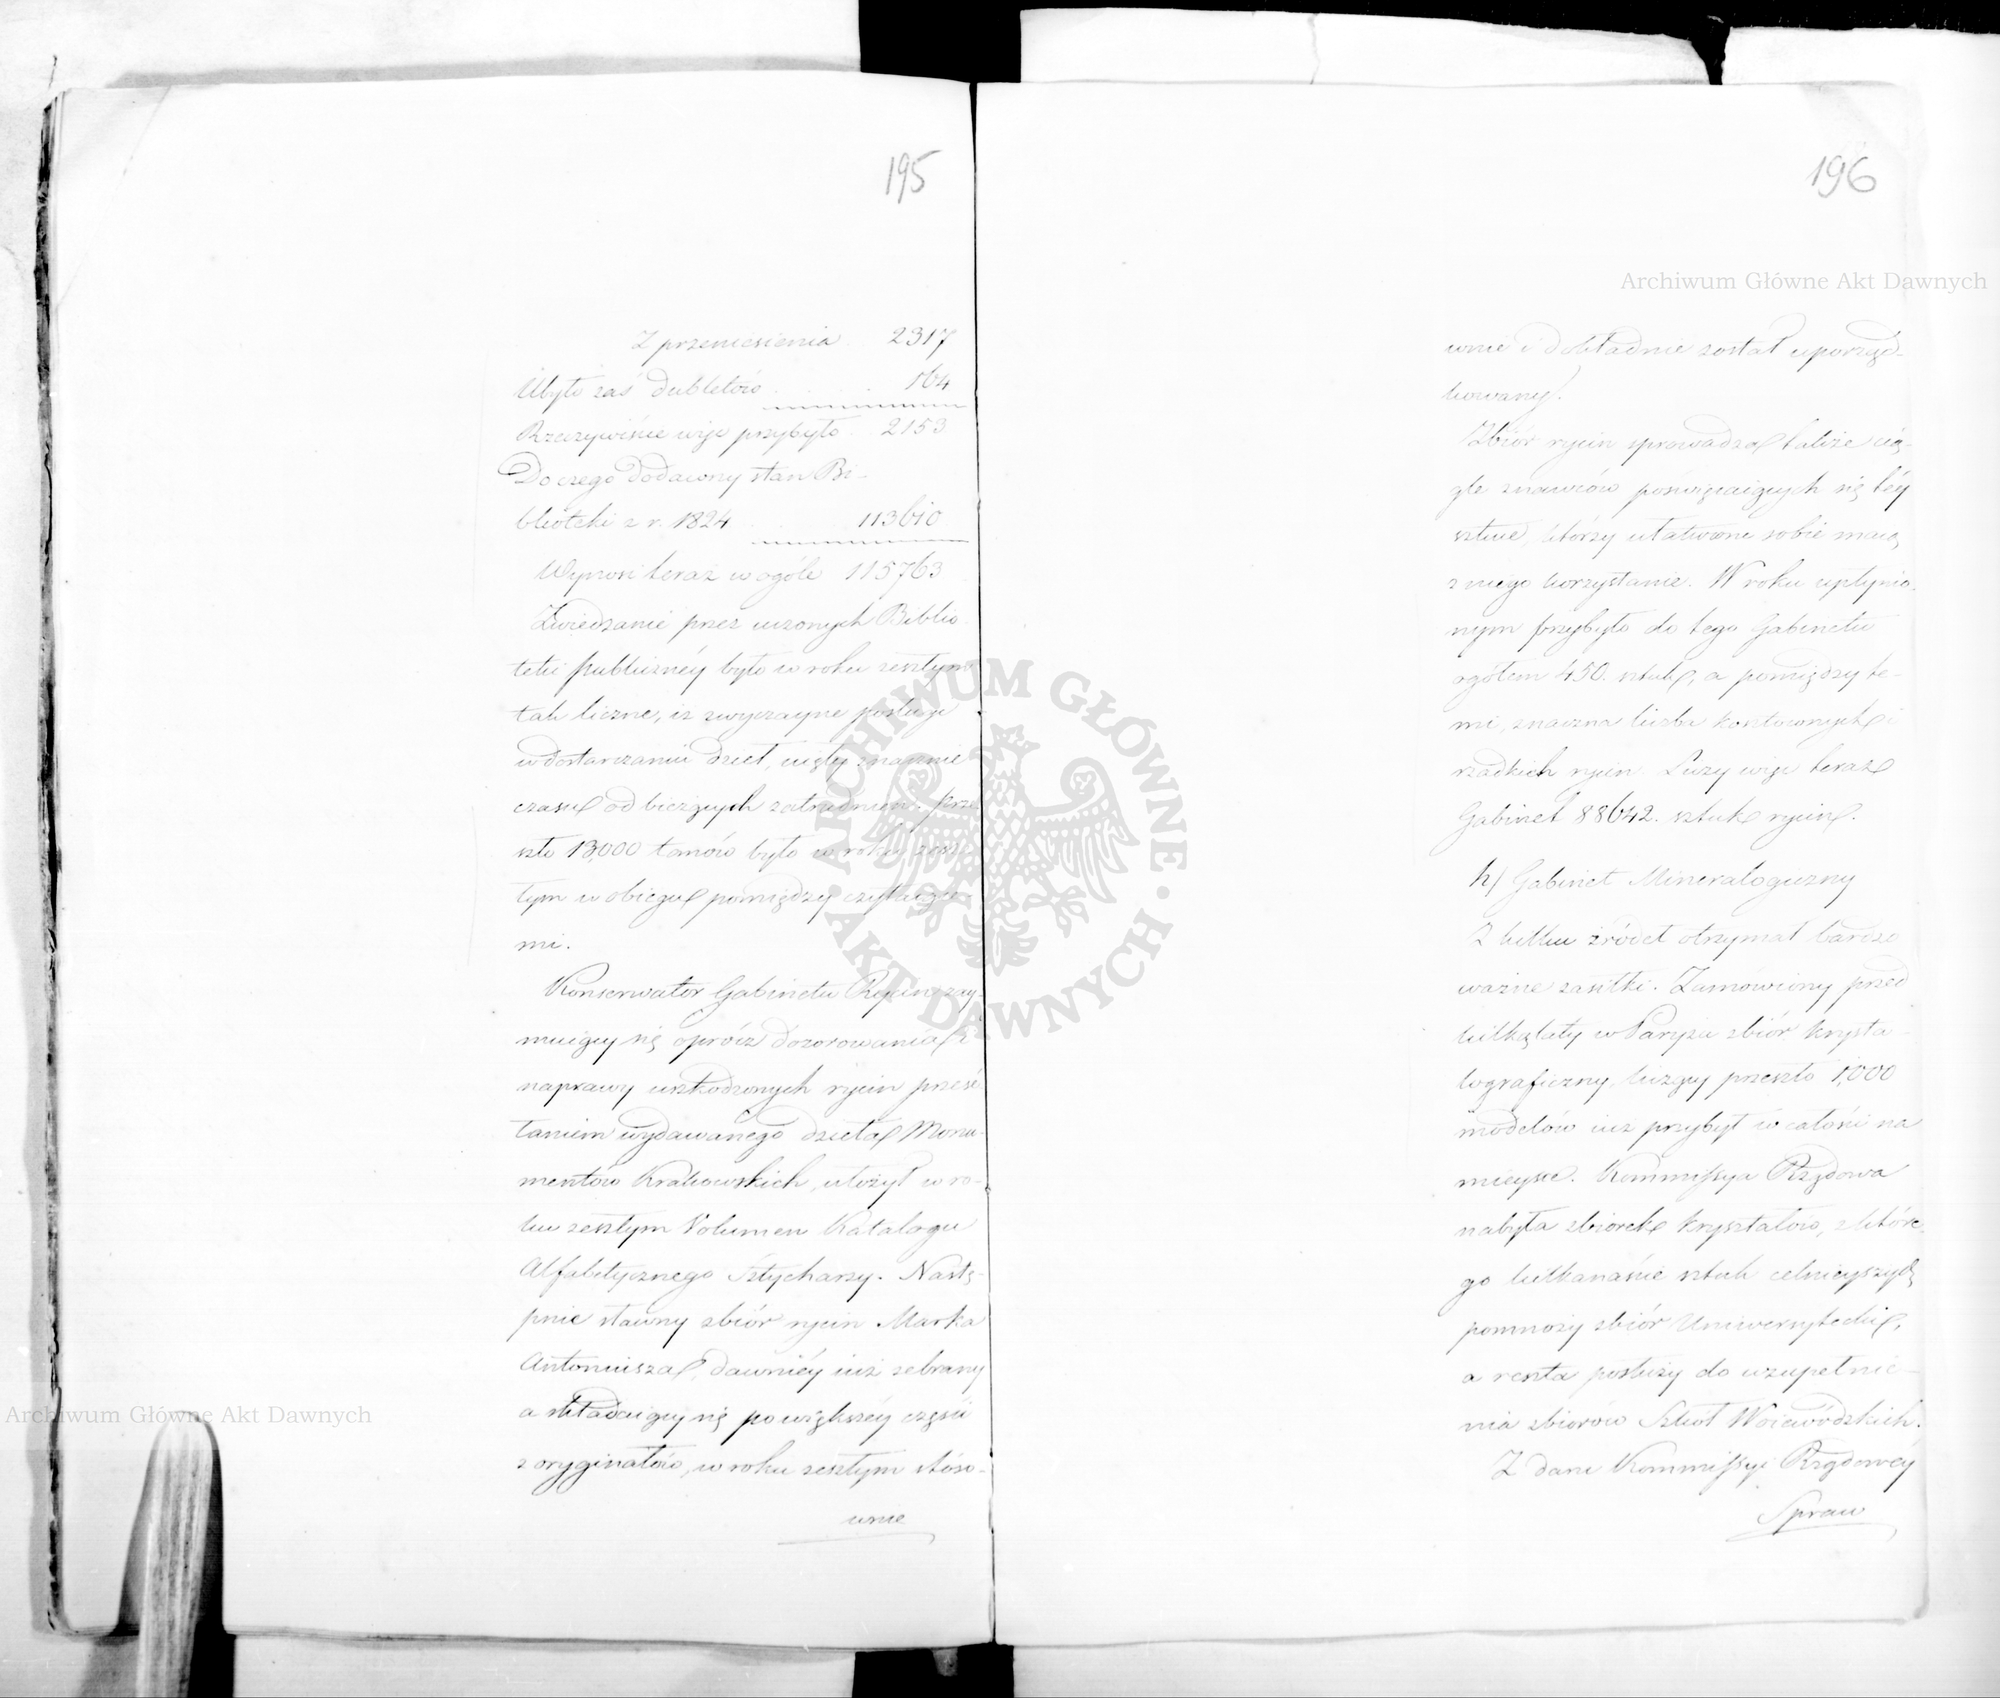 195
Z przeniesienia 2317
Ubyło zaś dubletów 164
Rzeczywiście więc przybyło 2153
Do czego dodawszy stan Bi-
blioteki z r. 1824 113610
Wynosi teraz w ogóle 115763
Zwiedzanie przez uczonych Biblio
teki publicznéy było w roku zeszłym
tak liczne, iż zwyczayne posługi
w dostarczaniu dzieł, uięły znacznie
czasu od bieżących zatrudnień. Prze
szło 13,000 tomów było w roku zesz-
łym w obiegu pomiędzy czytaiące-
mi.
Konserwator Gabinetu Rycin zay-
muiący się oprócz dozorowania i
naprawy uszkodzonych rycin
wydawanego dzieła Monu-
mentów Krakowskich, ułożył w ro-
ku zeszłym Volumen Katalogu
Alfabetycznego Sztycharzy. Nastę-
pnie sławny zbiór rycin Marka
Antoniusza, dawniéy iuż zebrany
a składaiący się po większéy części
z oryginałów, w roku zeszłym stóso-
wnie
196
Archiwum Główne Akt Dawnych
wnie i dokładnie został uporząd-
kowany.
Zbiór rycin sprowadza także cią-
gle znawców poświęcaiących się téy
sztuce, którzy ułatwione sobie maią
z niego korzystanie. W roku upłynio-
nym przybyło do tego Gabinetu
ogółem 450. sztuk, a pomiędzy te-
mi, znaczna liczba kosztownych i
rzadkich rycin. Liczy więc teraz
Gabinet 88642. sztuk rycin.
h/ Gabinet Mineralogiczny
Z kilku źródeł otrzymał bardzo
ważne zasiłki. Zamówiony przed
kilką laty w Paryżu zbiór krysta-
lograficzny, liczący przeszło 1,000
modelów iuż przybył w całości na
mieysce. Kommissya Rządowa
nabyła zbiorek kryształów, z które-
go kilkanaście sztuk celnieyszych
pomnoży zbiór Uniwersytecki,
a reszta posłuży do uzupełnie-
nia zbiorów Szkół Woiewódzkich.
Z daru Kommissyi Rządowéy
Spraw
ARCHIWUM GŁÓWNE
AKT DAWNYCH
Archiwum Główne Akt Dawnych